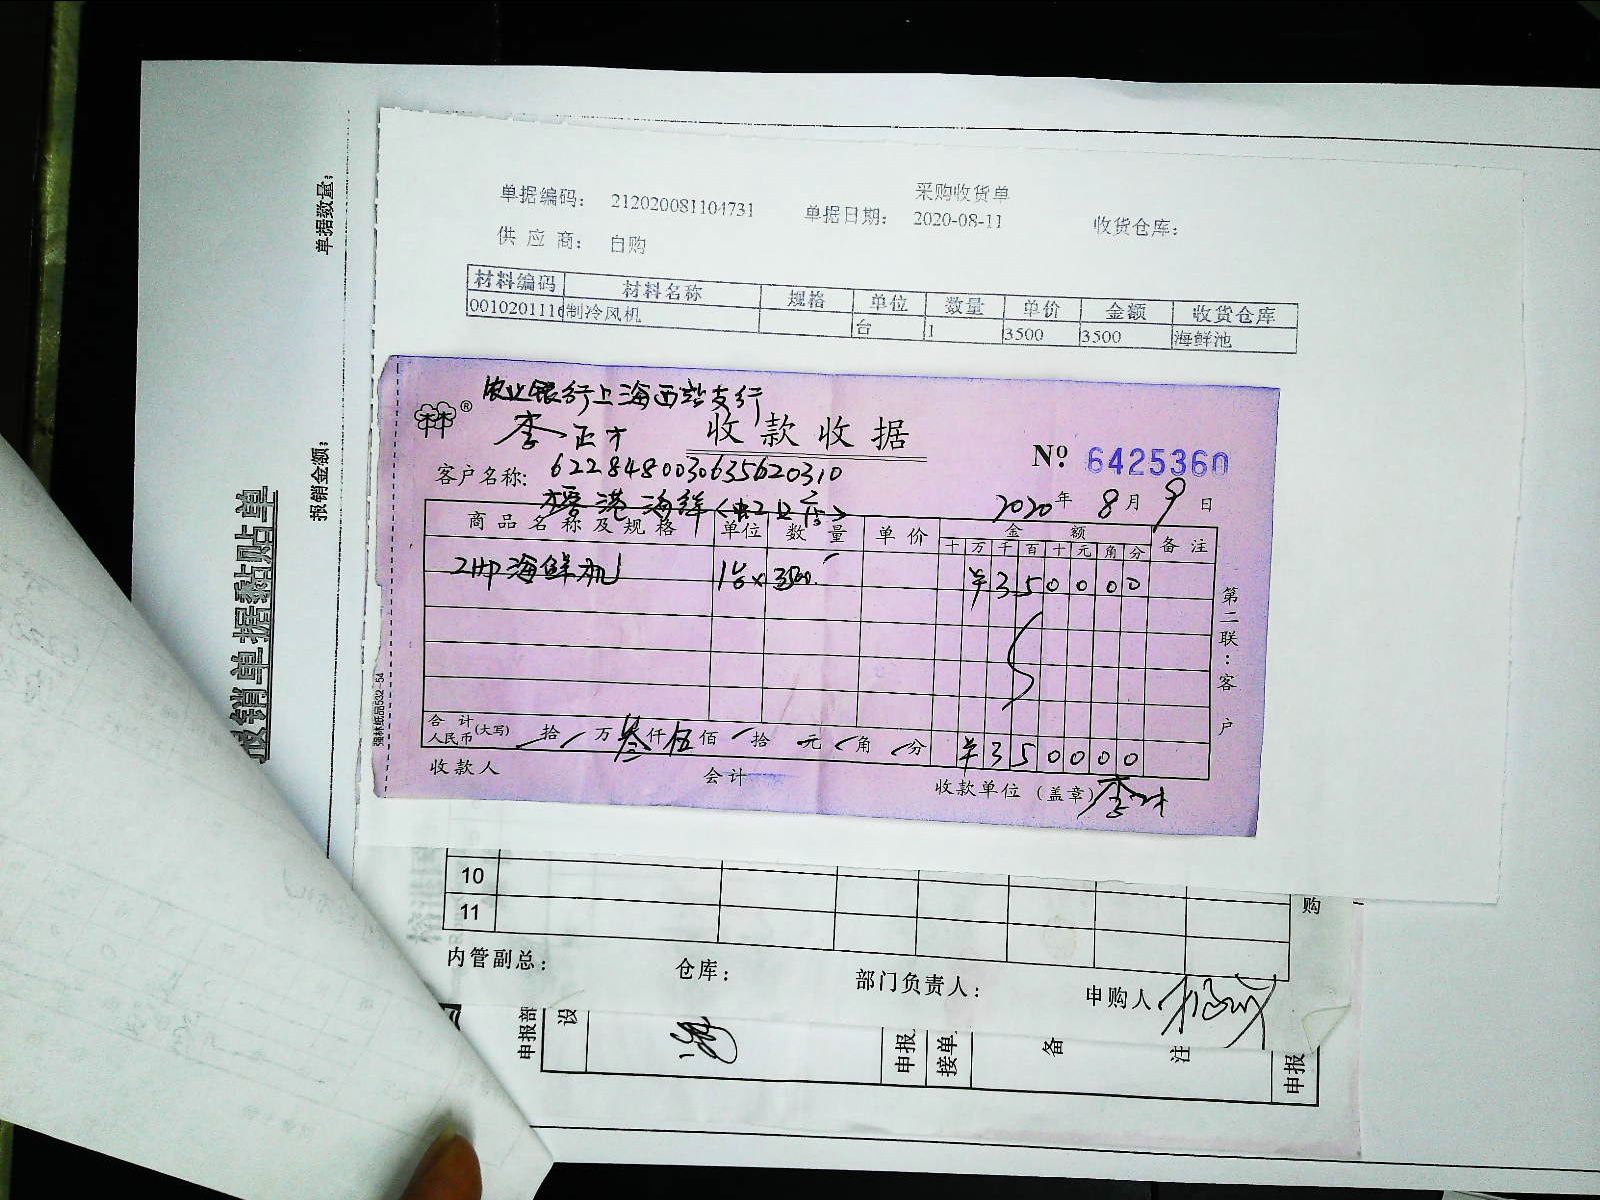 采购收货单
单据编码: 212020081104731 单据日期: 2020-08-11 收货仓库:
供应商: 自购
材料编码 材料名称 规格 单位 数量 单价 金额 收货仓库
0010201116 制冷风机 台 1 3500 3500 海鲜池
农业银行上海西站支行
李正才 收款收据
№ 6425360
客户名称: 6228480030635620310
2020年 8月 9日
港海鲜
商品名称及规格 单位 数量 单价 金额 备注
十 万 千 百 十 元 角 分
2HP海鲜机 1台×3500 ¥350000
第二联:客户
合计人民币(大写) 拾 万 叁仟 伍佰 拾 元 角 分 ¥350000
收款人 会计 收款单位(盖章)
强林纸品532-54
报销单据黏贴单
单据数量:
报销金额:
10
11
购
内管副总: 仓库: 部门负责人: 申购人
申报部
设
申报
接单
备注
申报